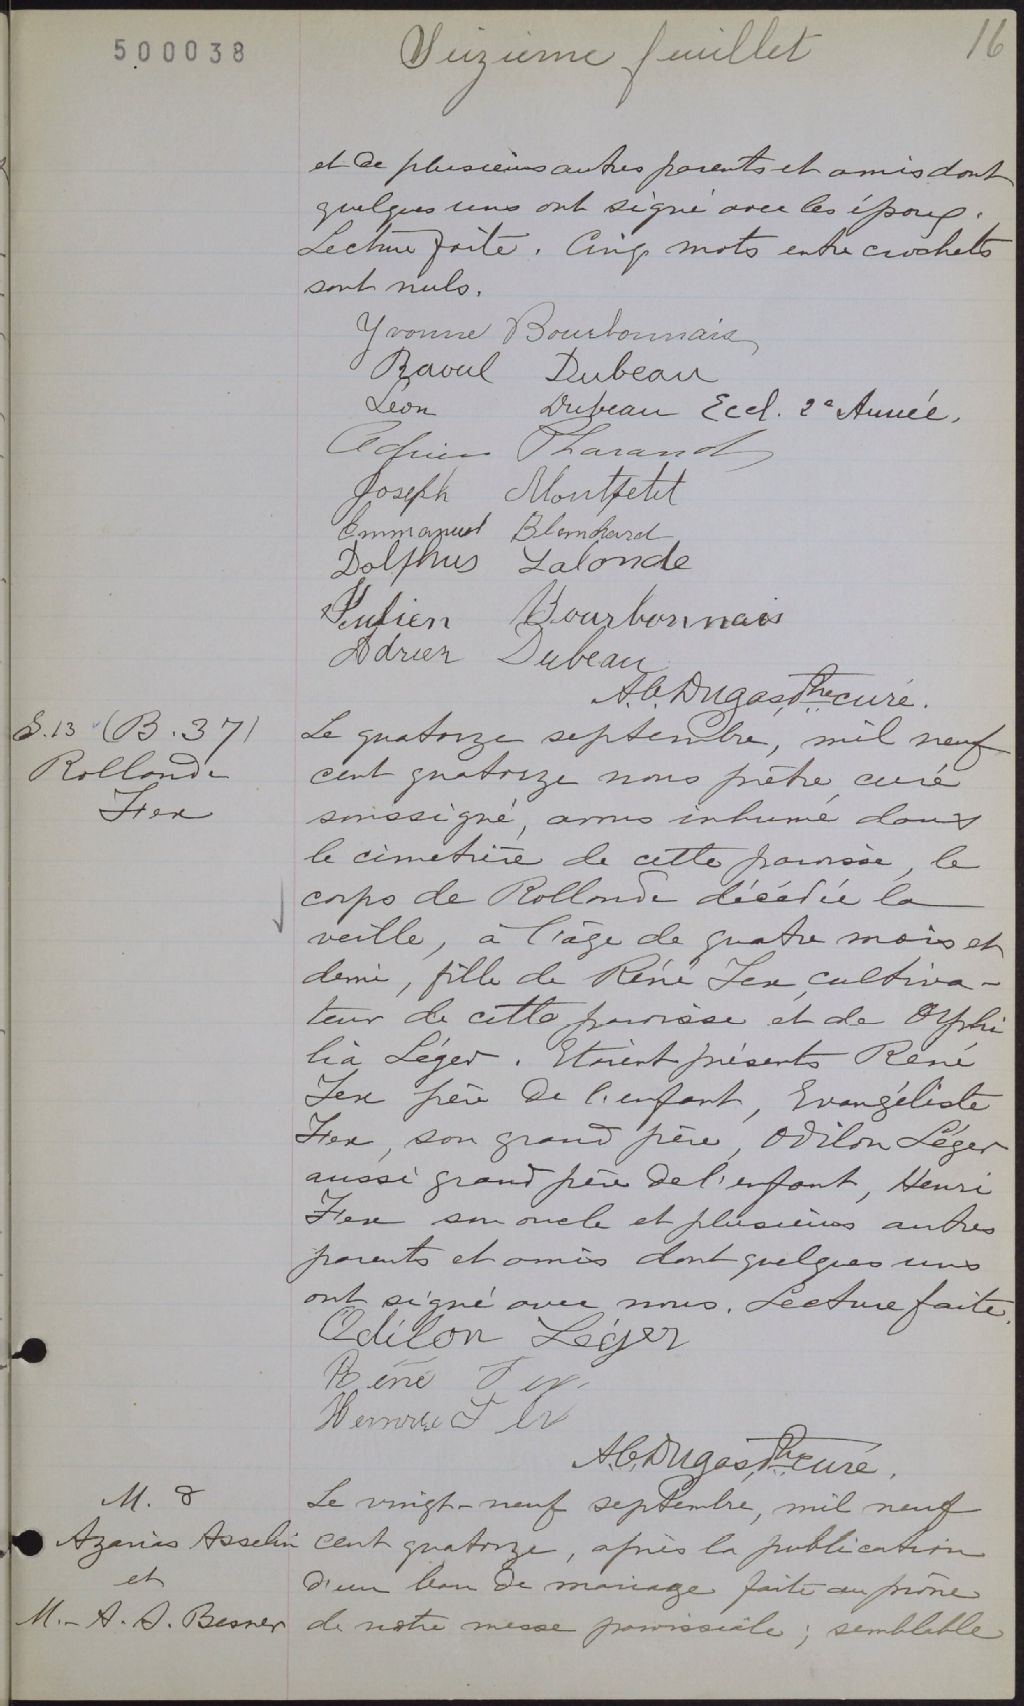 500038
Seizième feuillet
16
et de plusieurs autres parents et amis dont
quelques uns ont signé avec les époux.
Lecture faite. Cinq mots entre crochets
sont nuls.
Yvonne Bourbonnais
Raoul Dubeau
Léon Dubeau Eccl. 2e Année.
Adrien Pharand
Joseph Montpetit
Emmanuel Blanchard
Dolphus Lalonde
Julien Bourbonnais
Adrien Dubeau
A. C. Dugas, Ptre curé.
S. 13 (B. 37)
Rollande
Fex
Le quatorze septembre, mil neuf
cent quatorze nous prêtre curé
soussigné, avons inhumé dans
le cimetière de cette paroisse, le
corps de Rollande décédée la
veille, à l'âge de quatre mois et
demi, fille de Réné Fex, cultiva-
teur de cette paroisse et de Orphi
lia Léger. Etaient présents René
Fex père de l'enfant, Evangéliste
Fex, son grand père, Odilon Léger
aussi grand père de l'enfant, Henri
Fex son oncle et plusieurs autres
parents et amis dont quelques uns
ont signé avec nous. Lecture faite.
Odilon Léger
Réné Fex
Fex
A. C. Dugas, Ptre curé.
M. 8
Azarias Asselin
et
M.-A. S. Besner
Le vingt-neuf septembre, mil neuf
cent quatorze, après la publication
d'un ban de mariage faite au prône
de notre messe paroissiale; semblable